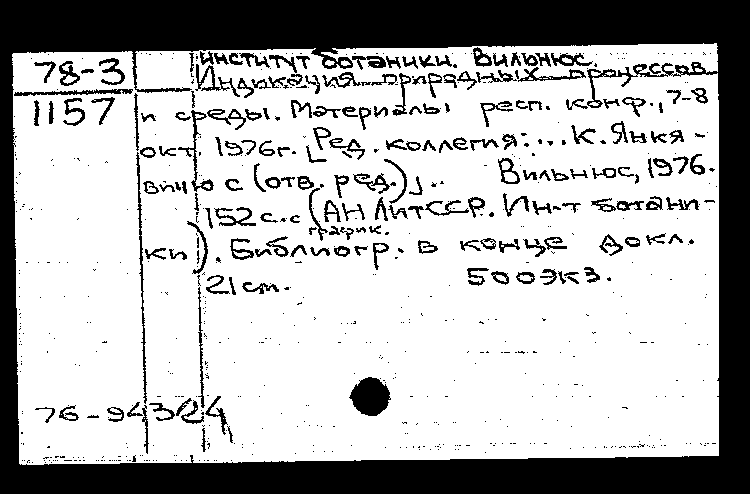 78-3
1157
институт ботаники. Вильнюс.
Индикация природных процессов
и среды. Материалы респ. конф., 7-8
окт. 1976г. [Ред. коллегия: ... К. Янкя-
вичюс (отв. ред.)]. Вильнюс, 1976.
152 с. с график. (АН ЛитССР. Ин-т ботани-
ки). Библиогр. в конце докл.
21 см. 500 экз.
76-94324